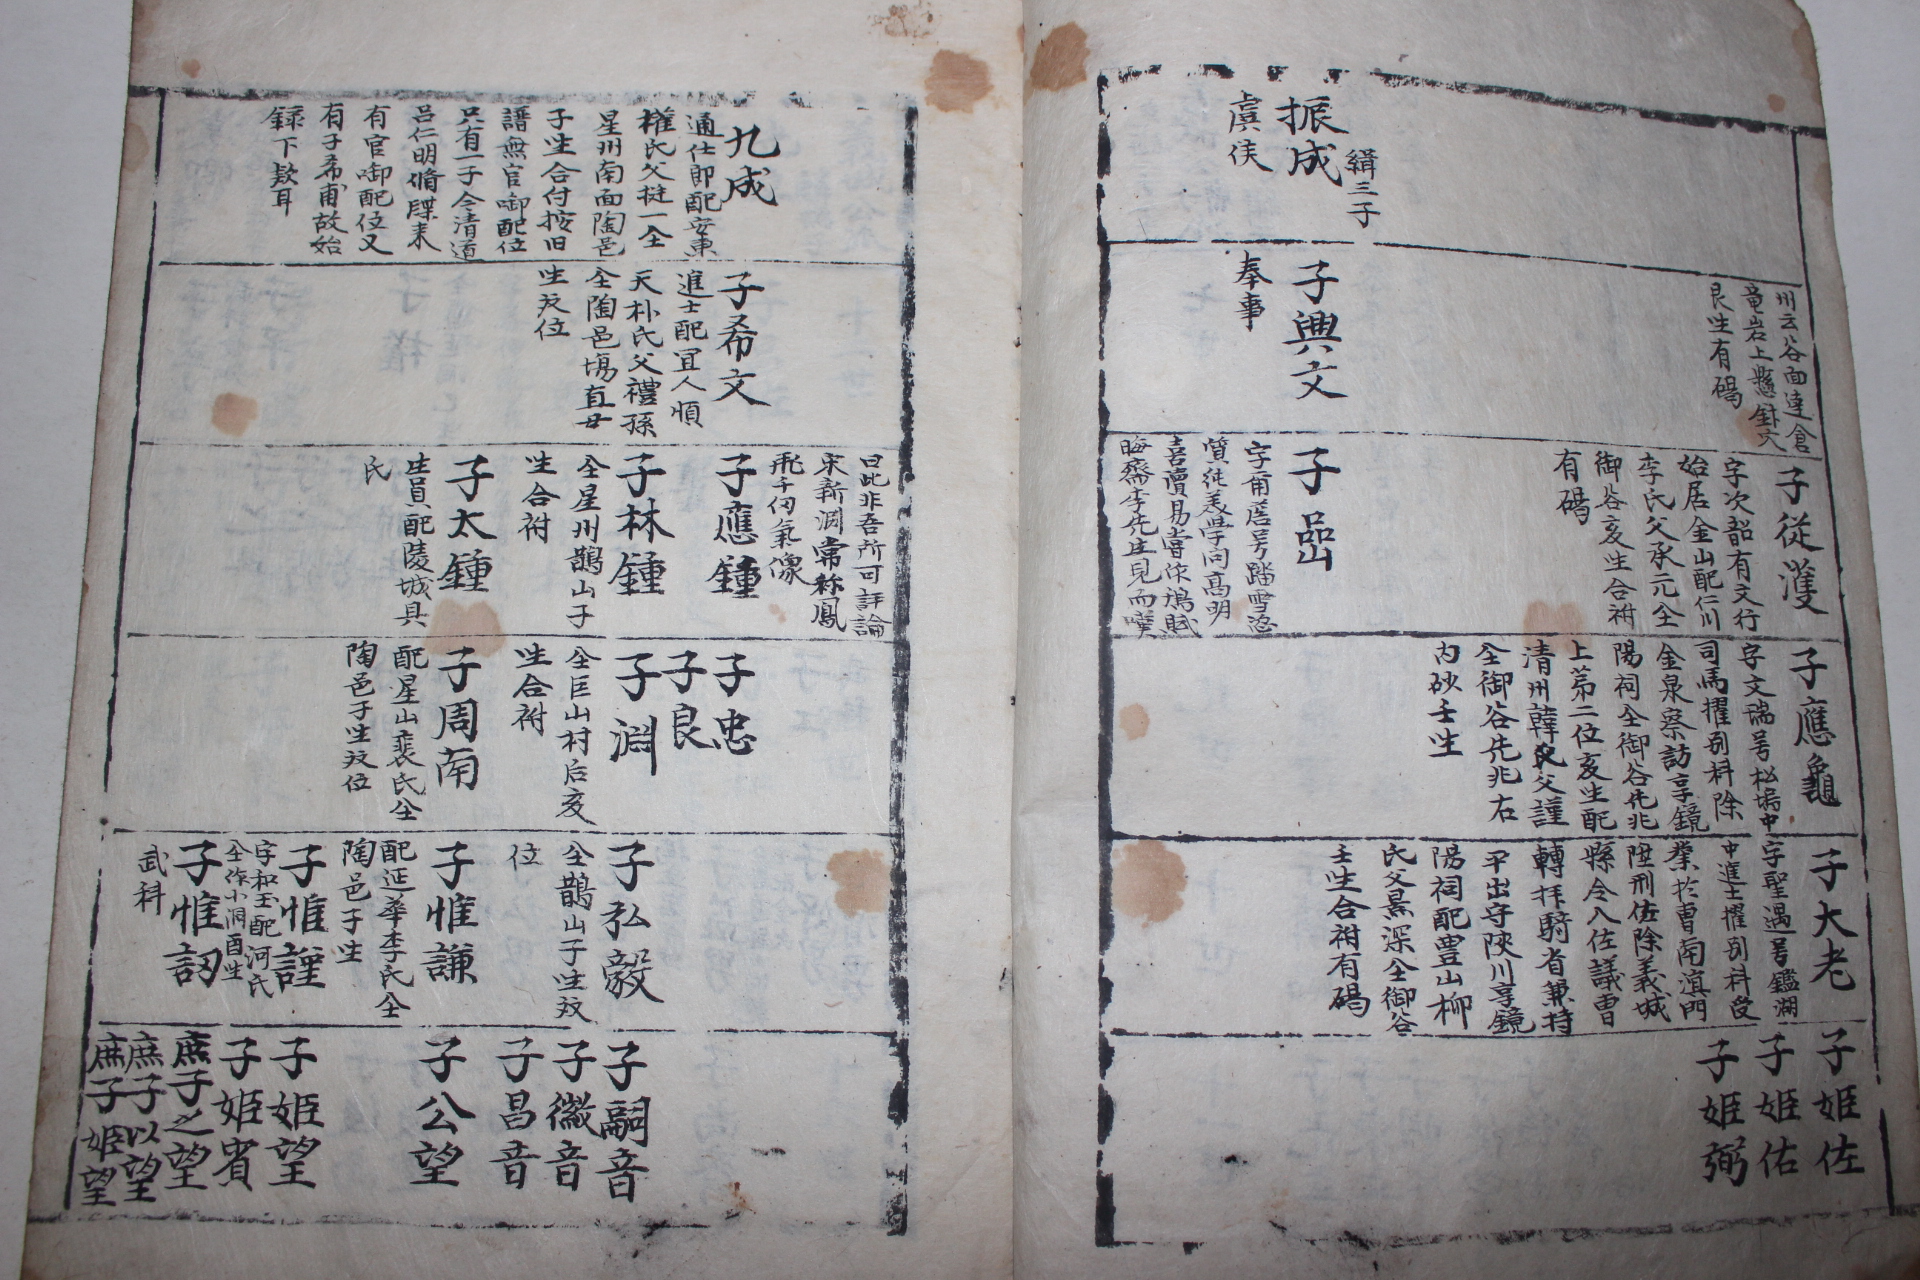 緝三子
振成
虞侯
州云谷面達倉
竜岩上懸封穴
艮坐有碣
子興文
奉事
子從濩
字次韶有文行
始居金山配仁川
李氏父承元仝
御谷亥坐合祔
有碣
子㗊
喜讀易嘗作鴻賦
晦齋李先生見而嘆
子應龜
字文瑞号松塢中
司馬擢別科除
金泉察訪享鏡
陽祠仝御谷先兆
上苐二位亥坐配
清州韓氏父謹
仝御谷先兆右
内砂壬坐
子大老
字聖遇号鑑湖
中進士擢別科受
業於曺南溟門
陞刑佐除義城
縣令入佐議曺
轉拜騎省兼持
平出守陜川享鏡
陽祠配豊山柳
氏父景深仝御谷
壬坐合祔有碣
子姬佐
子姬佑
子姬弼
九成
通仕郎配安東
權氏父挺一仝
星州南面陶邑
子坐合付按旧
譜無官啣配位
只有一子今清道
呂仁明脩牒來
有官啣配位又
有子希甫故始
録下款耳
子希文
進士配冝人順
天朴氏父禮孫
仝陶邑塲直廿
坐双位
曰此非吾所可評論
宋新淵常称鳳
飛千仞氣像
子應鍾
子林鍾
仝星州鵲山子
坐合祔
子太鍾
生員配陵城具
氏
子忠
子良
子淵
仝巨山村后亥
坐合祔
子周南
配星山裵氏仝
陶邑子坐双位
子弘毅
仝鵲山子坐双
位
子惟謙
配延華李氏仝
陶邑子坐
子惟謹
字和玉配河氏
仝作小洞酉坐
子惟訒
武科
子嗣音
子徽音
子昌音
子公望
子姬望
子姬賓
庶子之望
庶子以望
庶子姬望